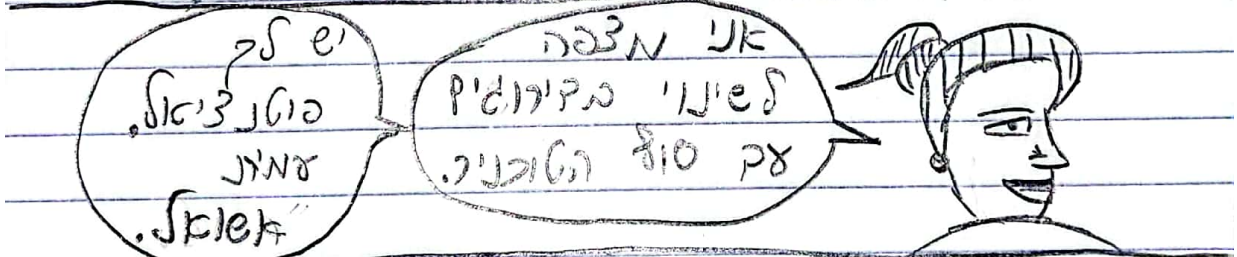 אני מצפה
לשינוי בדירוגים
עם סוף הטורניר.
יש לך
פוטנציאל,
עמית
אשואל.